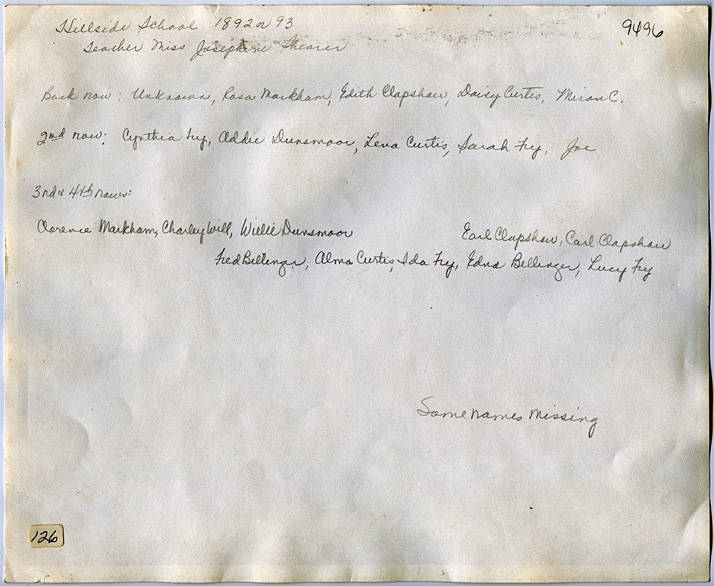 Hillside School 1892 or 93
9496
Teacher Miss Josephine Shearer
Back row: Unknown, Rosa Markham, Edith Clapshaw, Daisy Curtis, Miron C.
2nd row: Cynthia Fry, Addie Dunsmoor, Lena Curtis, Sarah Fry, Joe
3rd & 4th rows:
Clarence Markham, Charley Will, Willie Dunsmoor Earl Clapshaw, Carl Clapshaw
Fred Bellinger, Alma Curtis, Ida Fry, Edna Bellinger, Lucy Fry
Some names Missing
126